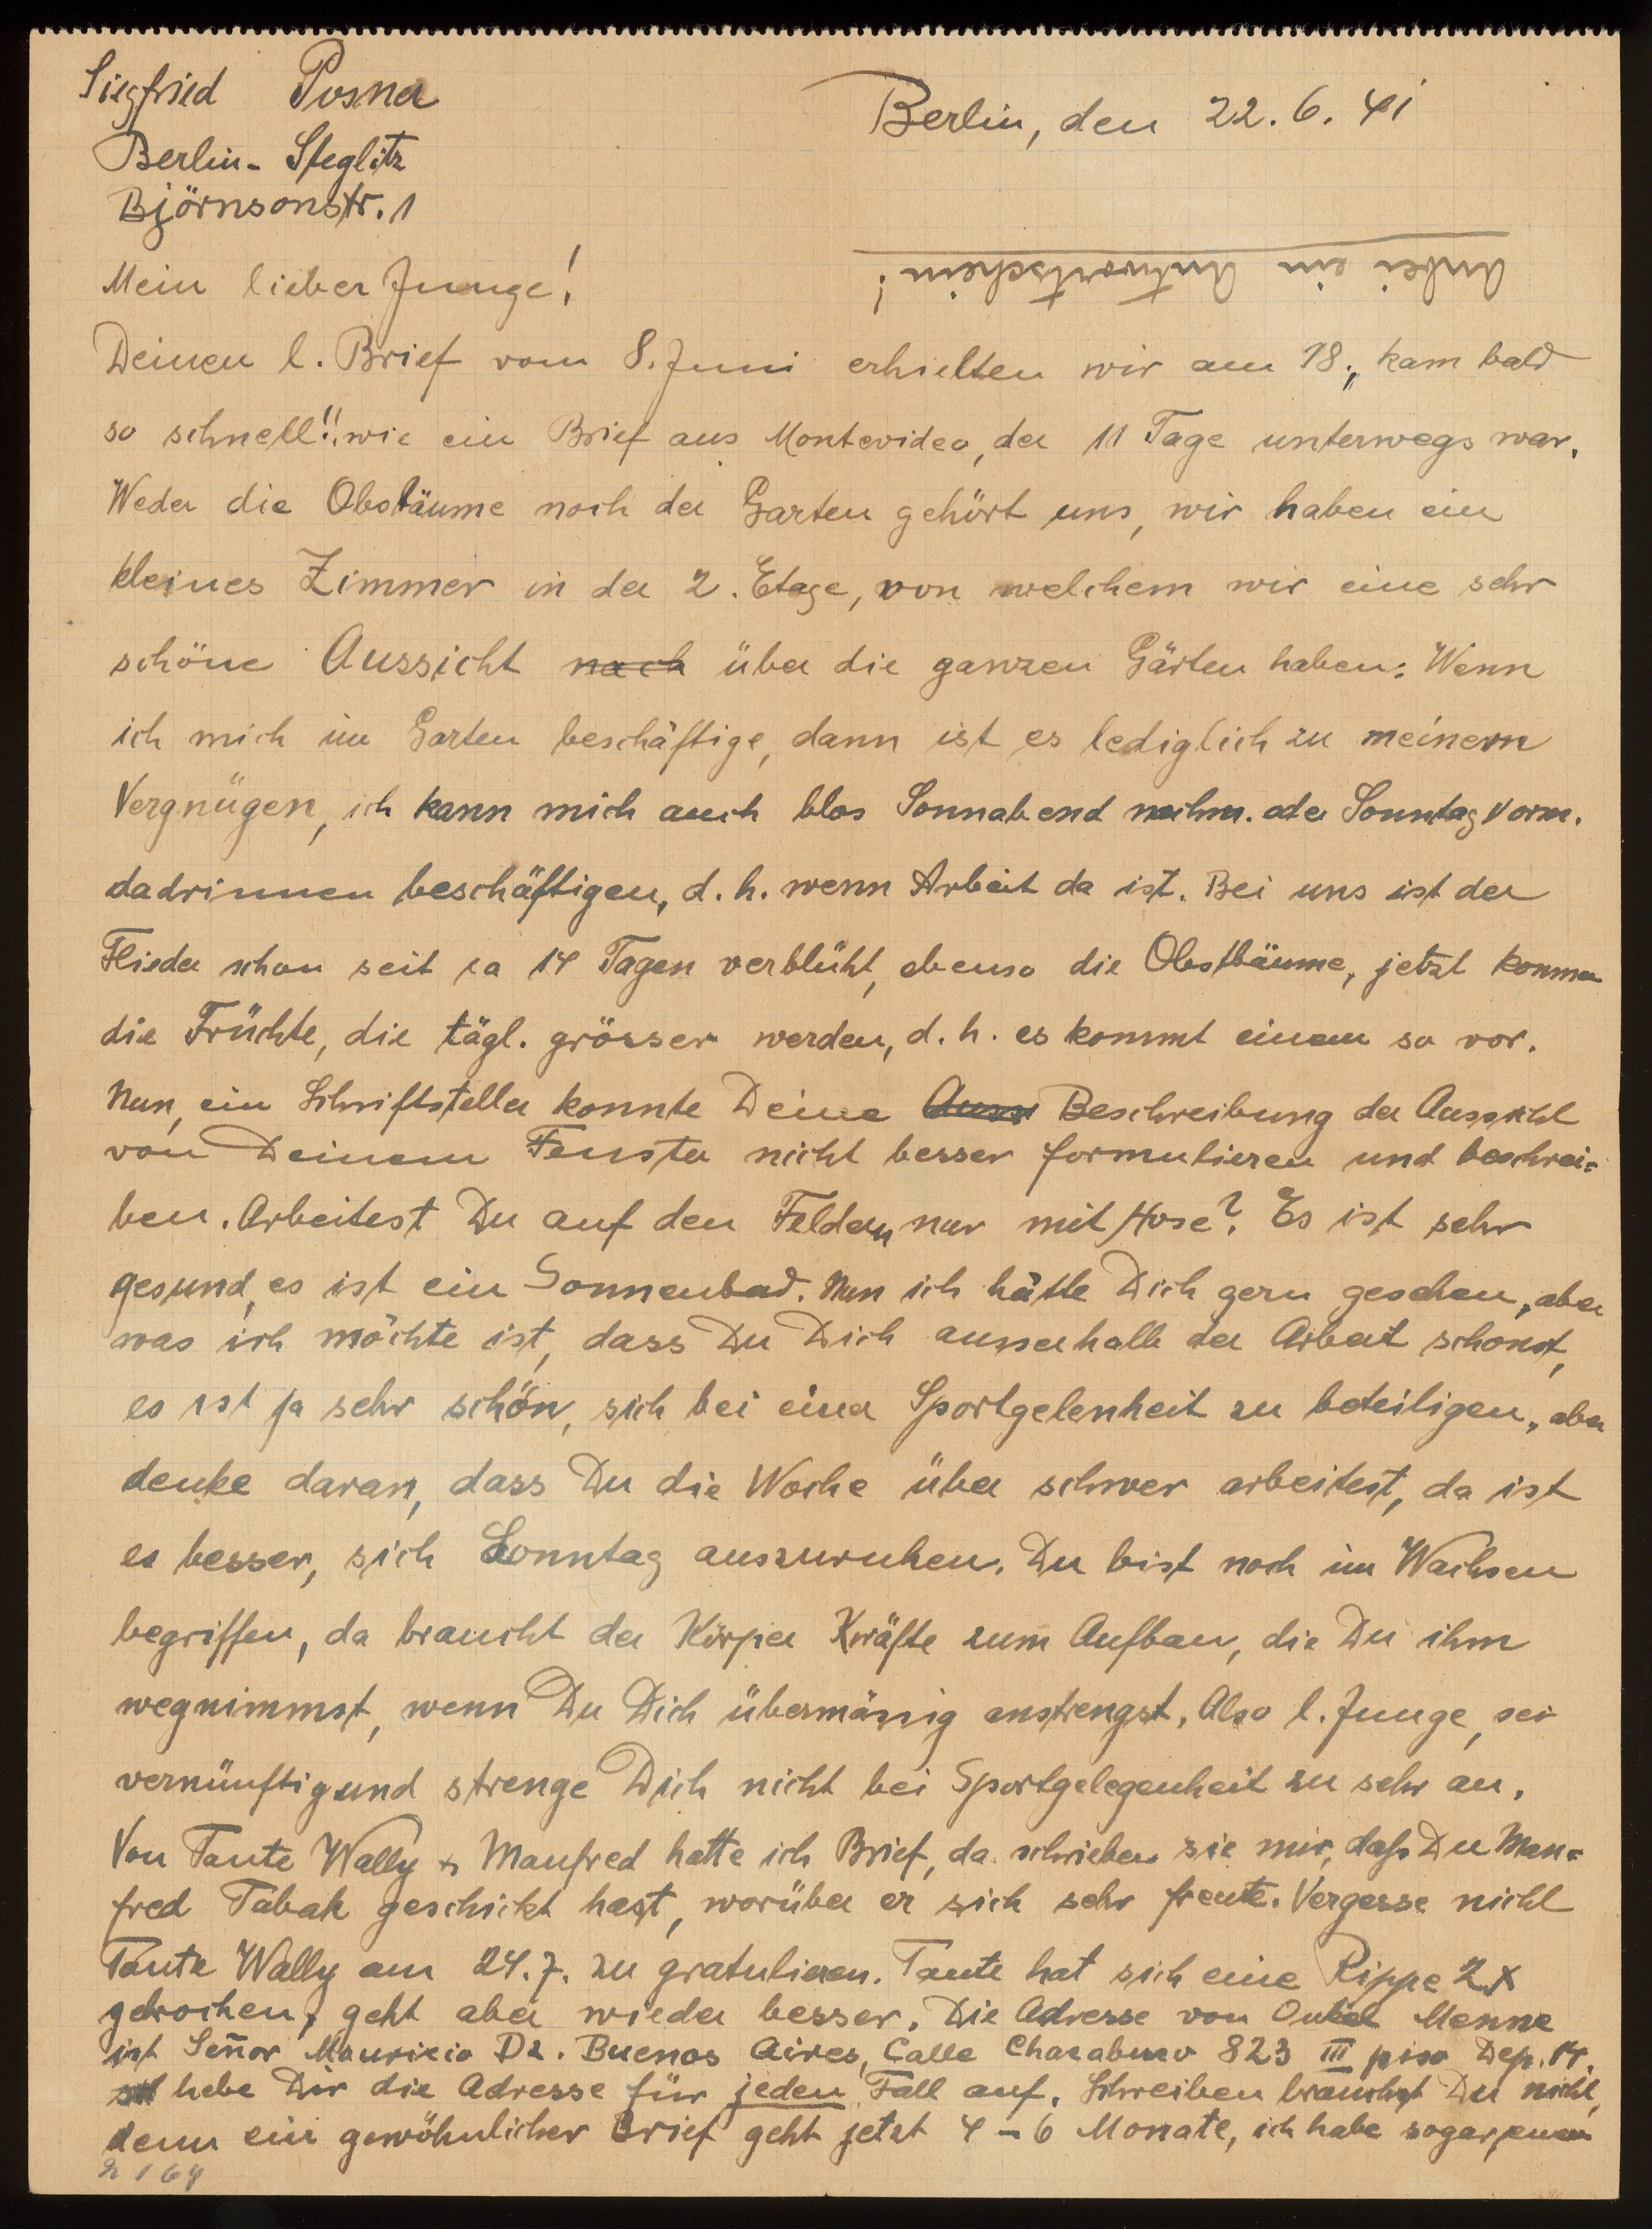 Siegfried Posner
Berlin, den 22.6.41
Berlin-Steglitz
Björnsonstr. 1
Anbei ein Antwortschein!
Mein lieber Junge!
Deinen l. Brief vom 8. Juni erhielten wir am 18., kam bald
so schnell!! wie ein Brief aus Montevideo, der 11 Tage unterwegs war.
Weder die Obstbäume noch der Garten gehört uns, wir haben ein
kleines Zimmer in der 2. Etage, von welchem wir eine sehr
schöne Aussicht nach über die ganzen Gärten haben. Wenn
ich mich im Garten beschäftige, dann ist es lediglich zu meinem
Vergnügen, ich kann mich auch blos Sonnabend nachm. oder Sonntag Vorm.
dadrinnen beschäftigen, d. h. wenn Arbeit da ist. Bei uns ist der
Flieder schon seit ca 14 Tagen verblüht, ebenso die Obstbäume, jetzt kommen
die Früchte, die tägl. grösser werden, d. h. es kommt einem so vor.
Nun, ein Schriftsteller konnte Deine Auss Beschreibung der Aussicht
von Deinem Fenster nicht besser formulieren und beschrei=
ben. Arbeitest Du auf den Feldern nur mit Hose? Es ist sehr
gesund, es ist ein Sonnenbad. Nun ich hätte Dich gern gesehen, aber
was ich möchte ist, dass Du Dich ausserhalb der Arbeit schonst,
es ist ja sehr schön, sich bei einer Sportgelenheit zu beteiligen, aber
denke daran, dass Du die Woche über schwer arbeitest, da ist
es besser, sich Sonntag auszuruhen. Du bist noch im Wachsen
begriffen, da braucht der Körper Kräfte zum Aufbau, die Du ihm
wegnimmst, wenn Du Dich übermässig anstrengst. Also l. Junge, sei
vernünftig und strenge Dich nicht bei Sportgelegenheit zu sehr an.
Von Tante Wally & Manfred hatte ich Brief, da schrieben sie mir, daß Du Man=
fred Tabak geschickt hast, worüber er sich sehr freute. Vergesse nicht
Tante Wally am 24.7. zu gratulieren. Tante hat sich eine Rippe 2x
gebrochen, geht aber wieder besser. Die Adresse von Onkel Menne
ist Señor Mauricio Dz. Buenos Aires, Calle Chacabuco 823 III piso Dep. 14.
hebe Dir die Adresse für jeden Fall auf. Schreiben brauchst Du nicht,
denn ein gewöhnlicher Brief geht jetzt 4-6 Monate, ich habe sogar
2164